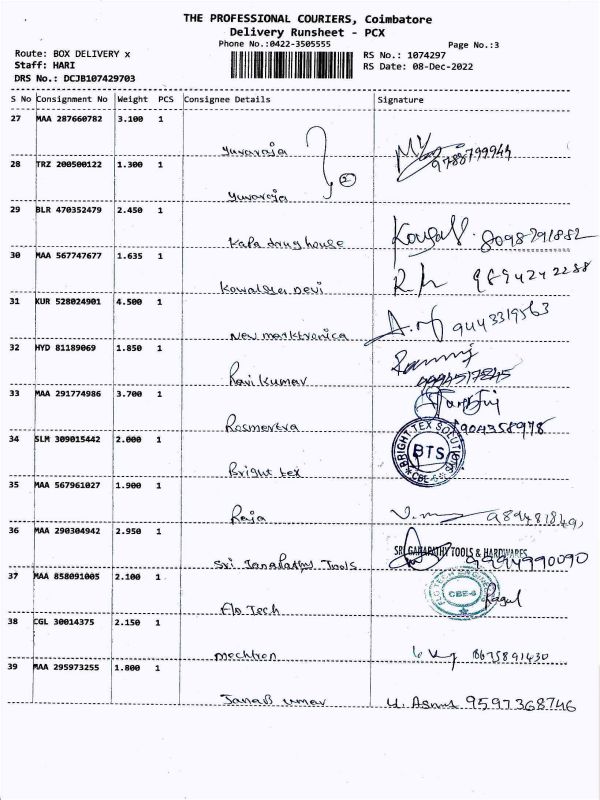 THE PROFESSIONAL COURIERS, Coimbatore
Delivery Runsheet - PCX
Phone No.:0422-3505555
Page No.:3
Route: BOX DELIVERY x
RS No.: 1074297
Staff: HARI
RS Date: 08-Dec-2022
DRS No.: DCJB107429703
S No Consignment No Weight PCS Consignee Details Signature
27 MAA 287660782 3.100 1
yuvaraja
28 TRZ 200500122 1.300 1
2
yuvaraja
29 BLR 470352479 2.450 1
Kapa drug house 8098791882
30 MAA 567747677 1.635 1
Kowalya Devi 9894242288
31 KUR 528024901 4.500 1
New marktronica 9443319563
32 HYD 81189069 1.850 1
Ravi kumar
33 MAA 291774986 3.700 1
34 SLM 309015442 2.000 1
BRIGHT TEX SOLUTIONS
BTS
CBE-6
Bright tex
35 MAA 567961027 1.900 1
Raja
36 MAA 290304942 2.950 1
SRI GANAPATHY TOOLS & HARDWARES
Sri Ganapathy Tools 9994990090
37 MAA 858091005 2.100 1
CBE-6
Flo Tech
38 CGL 30014375 2.150 1
mechtron
39 MAA 295973255 1.800 1
9597368746